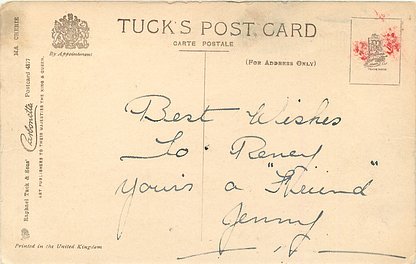 TUCK'S POST CARD
CARTE POSTALE
By Appointment
(FOR ADDRESS ONLY)
MA CHERIE
Raphael Tuck & Sons' "Carbonette" Postcard 4677
ART PUBLISHERS TO THEIR MAJESTIES THE KING & QUEEN.
Best Wishes
To Reney
yours a "Freind"
Jenny
Printed in the United Kingdom